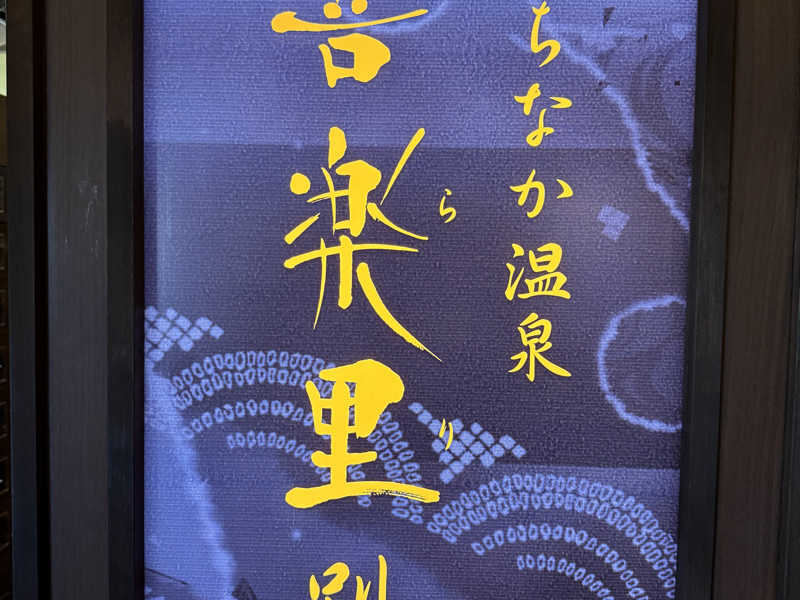 ちなか温泉
らり
楽里